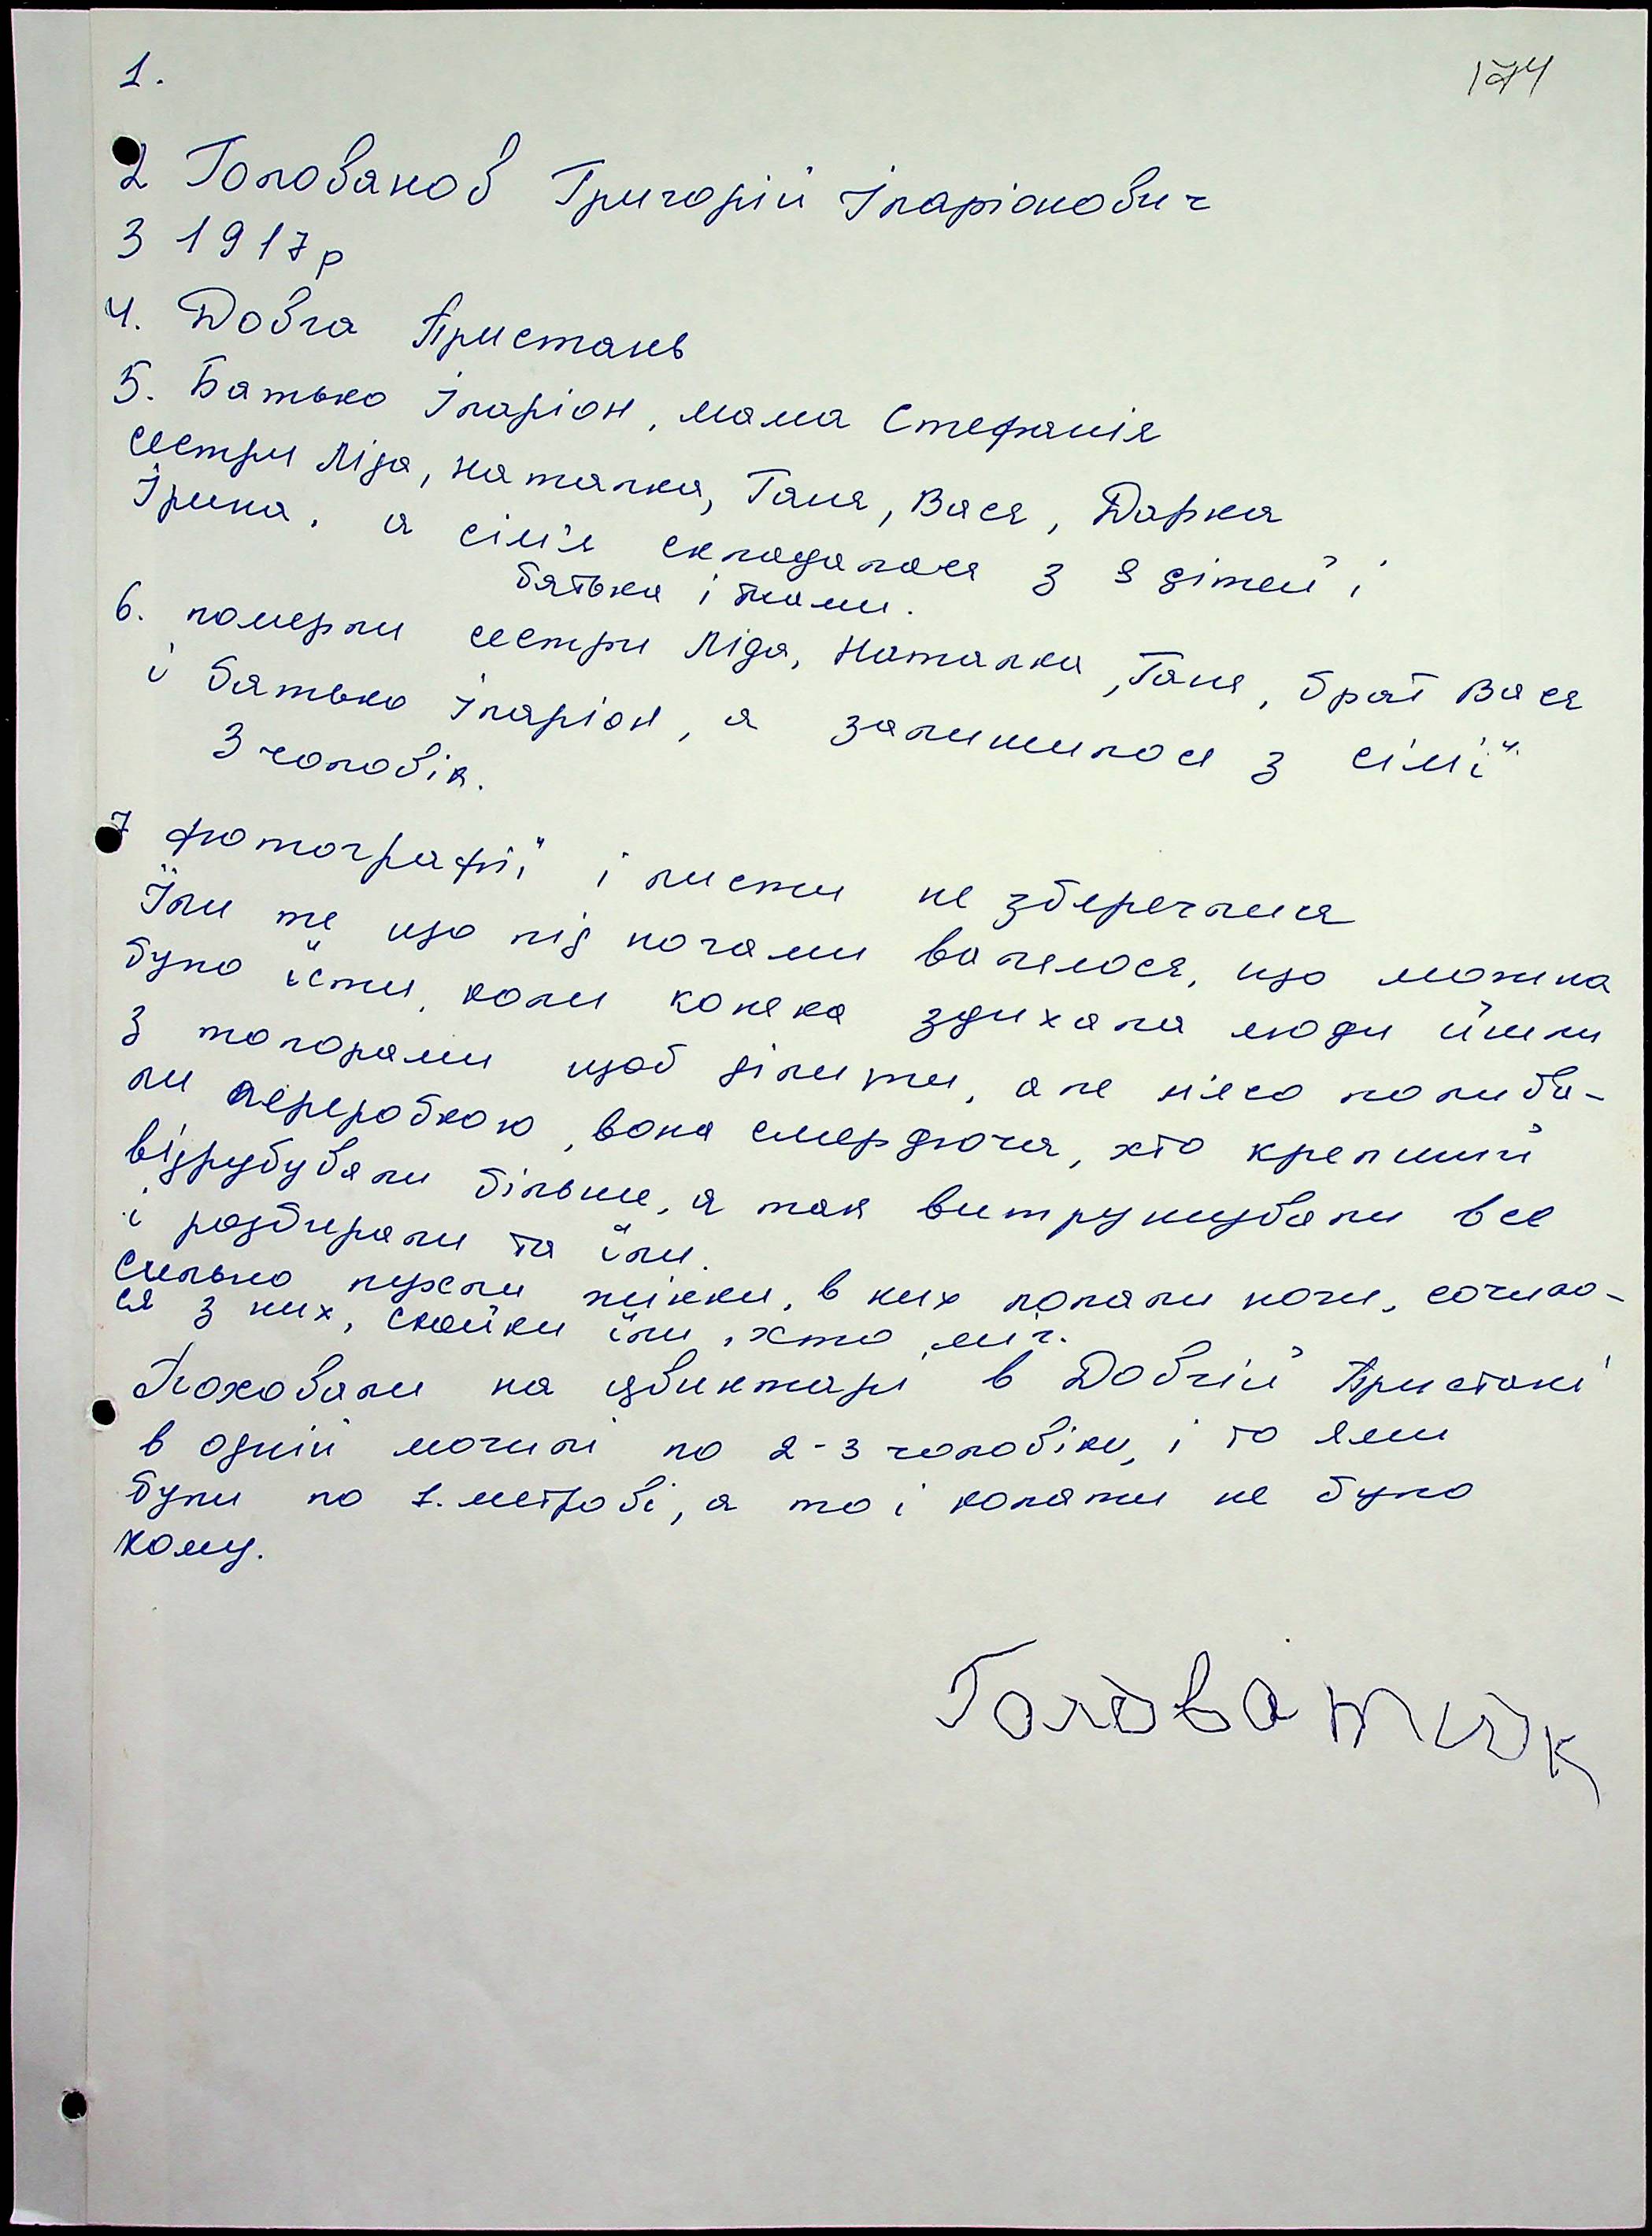 1.
174
2 Голованов Григорій Іларіонович
3 1917р
4. Довга Пристань
5. Батько Іларіон, мама Стефанія
сестри Ліда, Наталка, Таня, Вася, Дарка
Ірина, а сім'я складалася з 8 дітей і
батька і мами.
6. померли сестри Ліда, Наталка, Таня, брат Вася
і батько Іларіон, а залишилося з сімї
3 чоловік.
7 фотографії і листи не збереглися
Їли те що під ногами валялося, що можна
було їсти, коли коняка здихала люди йшли
з топорами щоб ділити, але мясо полива-
ли переробкою, вона смердюча, хто крепший
відрубували більше, а так витрушували все
і розбирали та їли.
Сильно пухли жінки, в них лопали ноги, сочило-
ся з них, скойки їли, хто міг.
Поховали на цвинтарі в Довгій Пристані
в одній могилі по 2-3 чоловіки, і то ями
були по 1. метрові, а то і копати не було
кому.